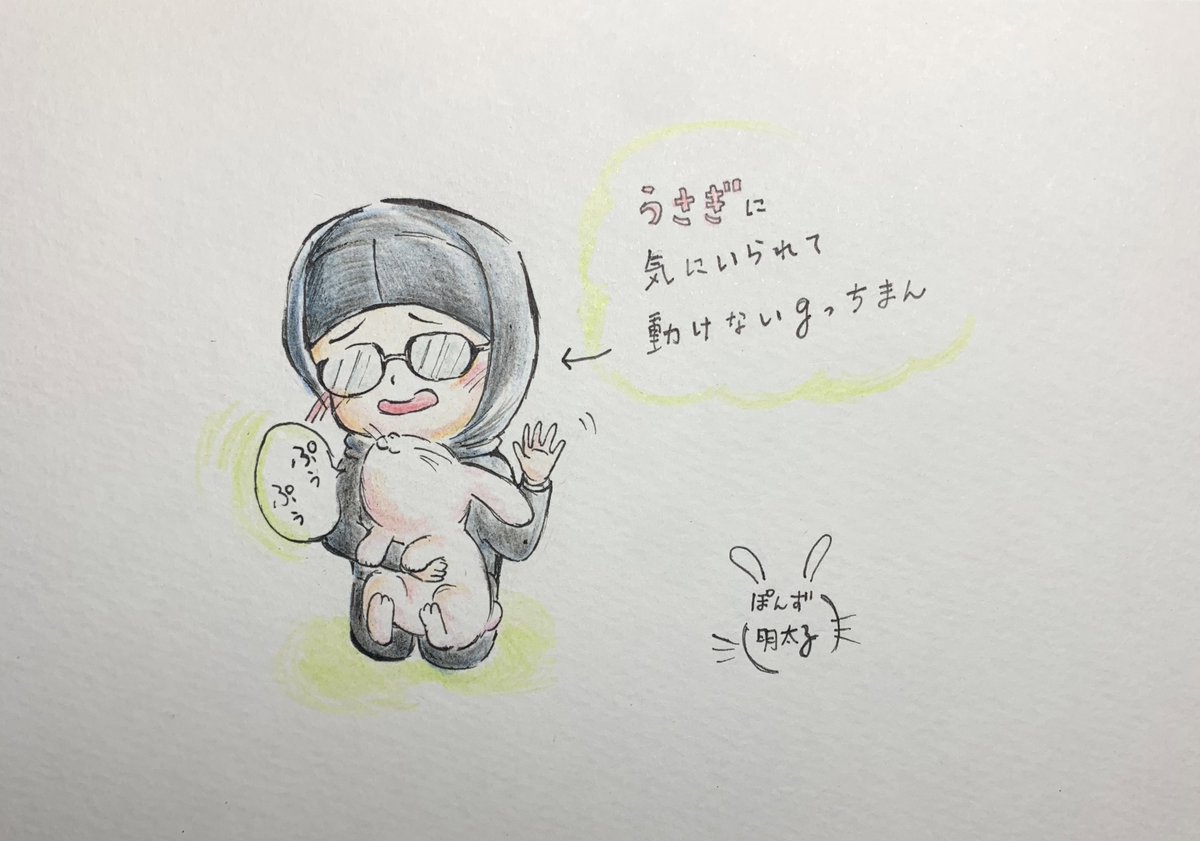 うさぎに
気にいられて
動けないgっちまん
ぷぅ
ぷぅ
ぽんず
明太子